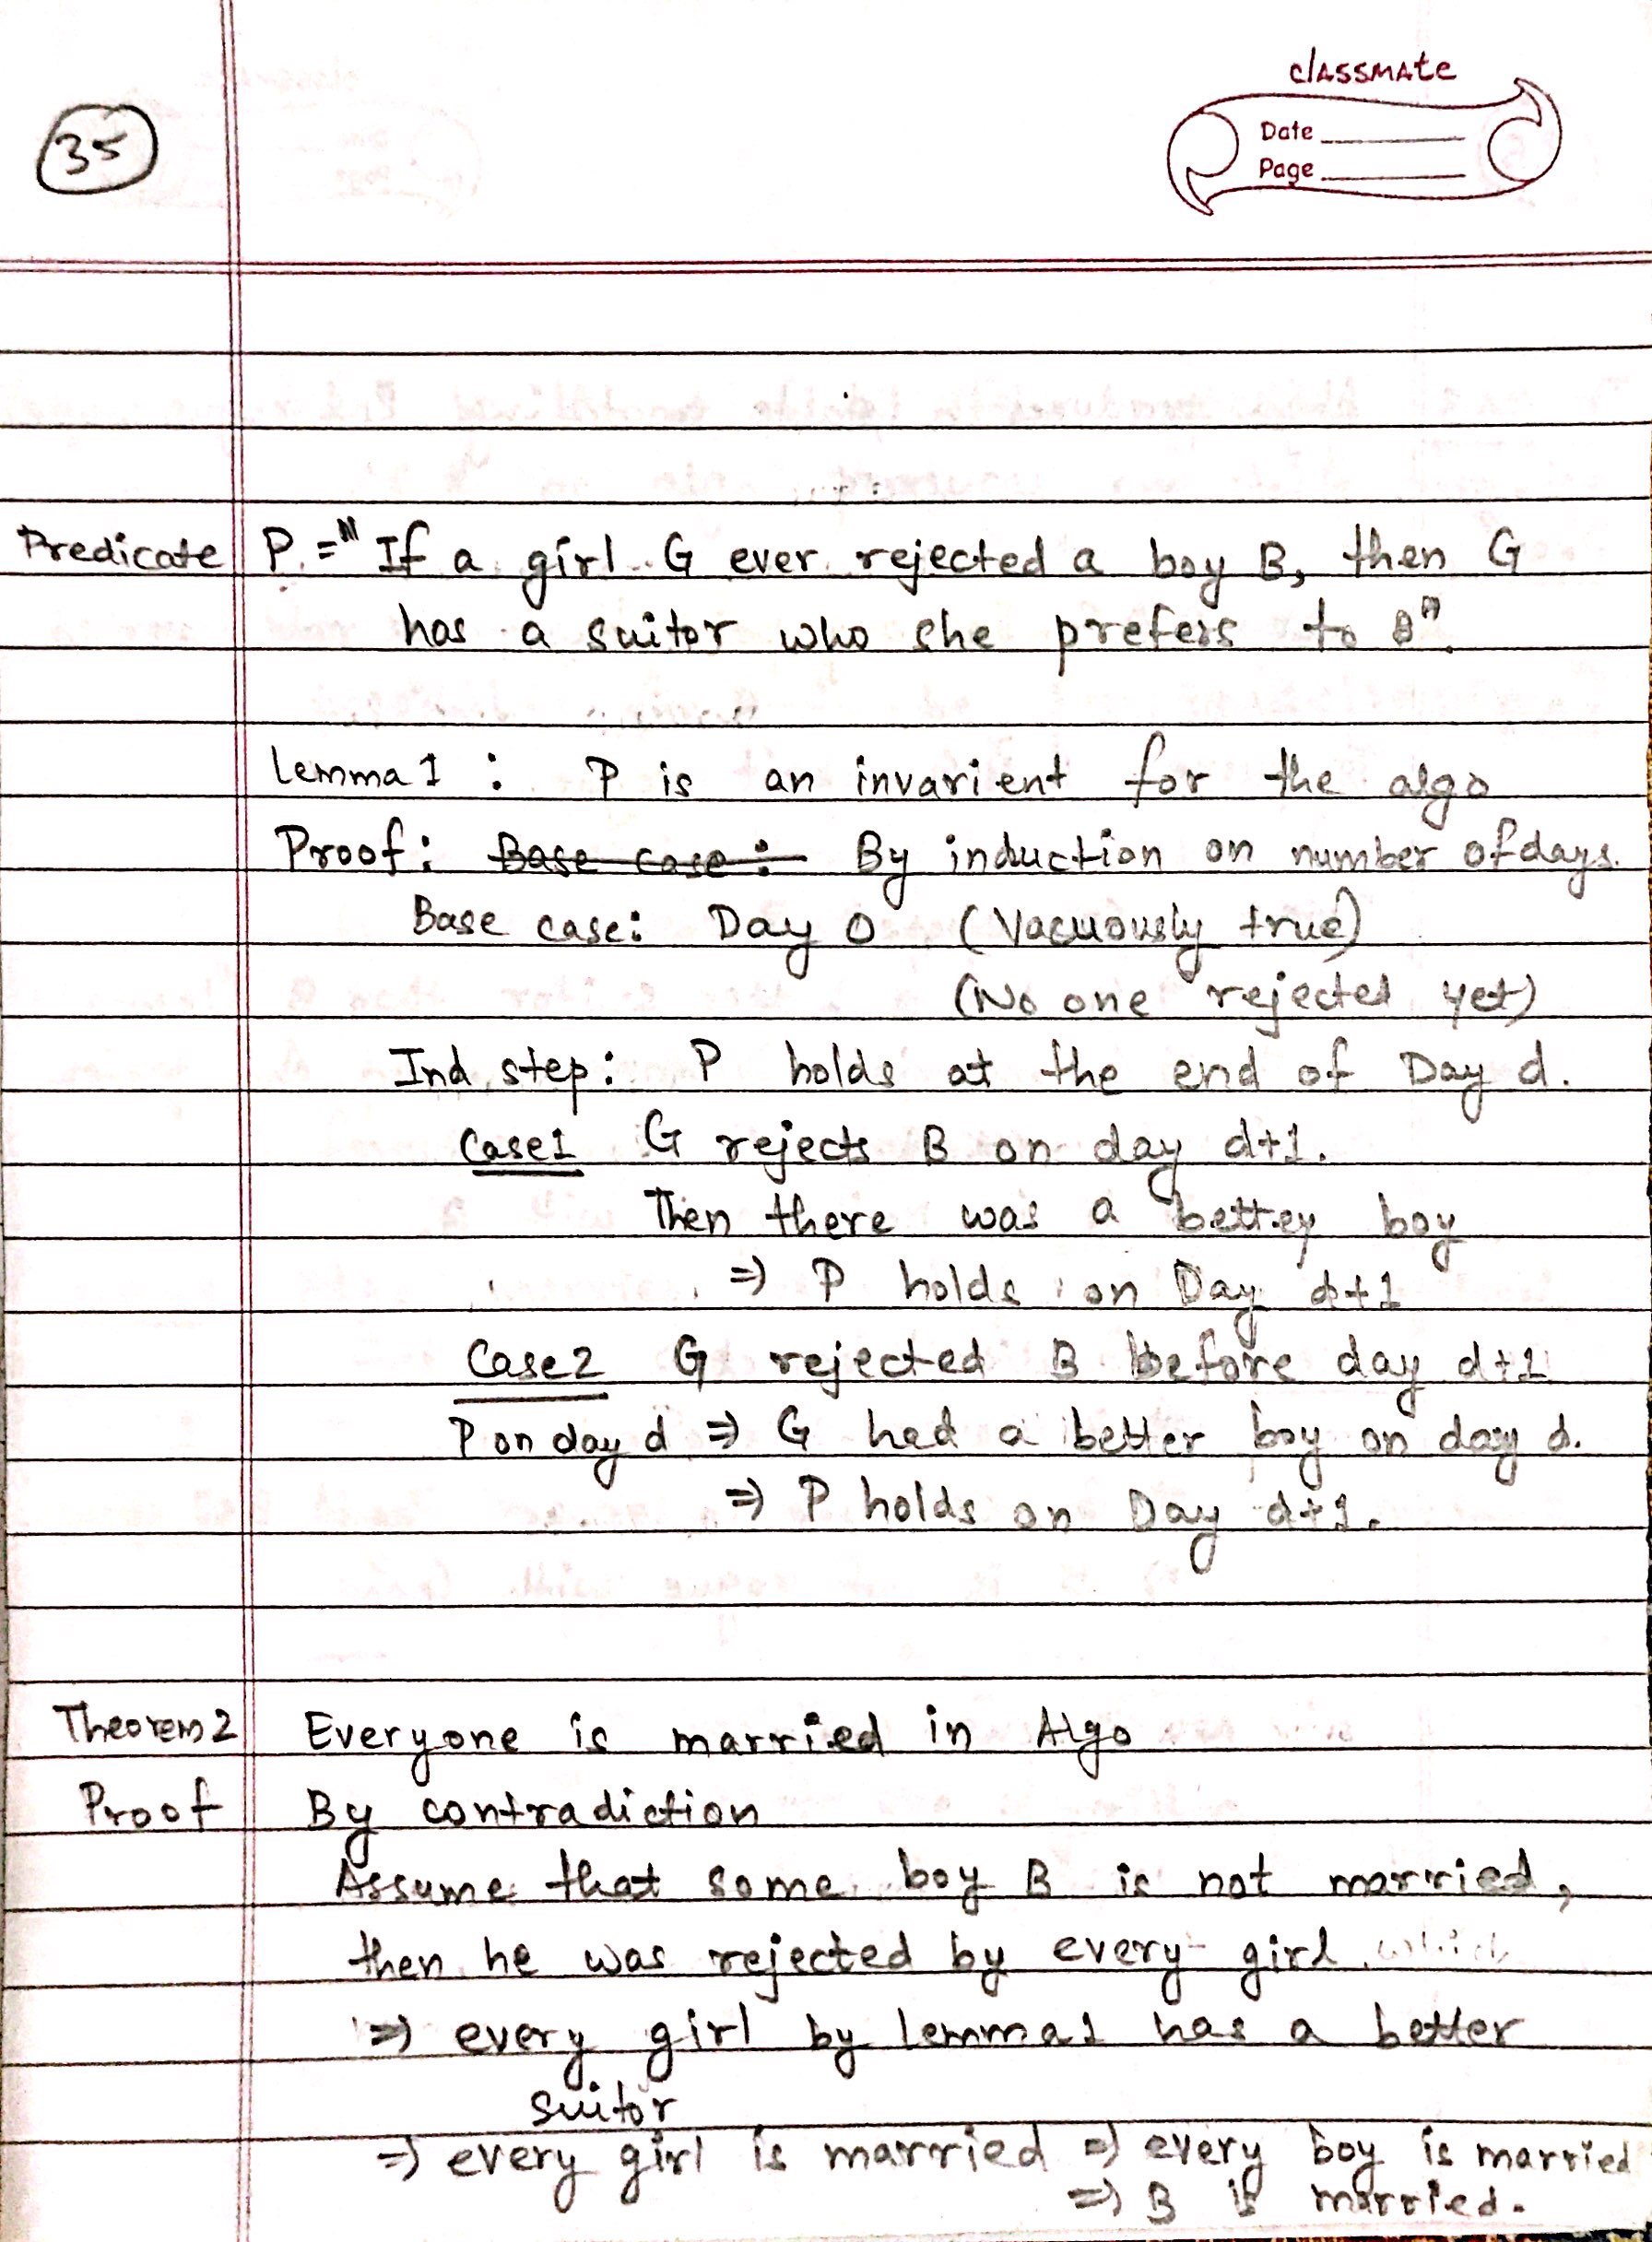 classmate
Date
Page
35
Predicate P = "If a girl G ever rejected a boy B, then G
has a suitor who she prefers to B".
Lemma 1 : P is an invarient for the algo
Proof: Base case: By induction on number of days.
Base case: Day 0 (Vacuously true)
(No one rejected yet)
Ind. step: P holds at the end of Day d.
Case1 G rejects B on day d+1.
Then there was a better boy
⇒ P holds on Day d+1
Case2 G rejected B before day d+1
P on day d ⇒ G had a better boy on day d.
⇒ P holds on Day d+1.
Theorem 2 Everyone is married in Algo
Proof By contradiction
Assume that some boy B is not married,
then he was rejected by every girl. which
⇒ every girl by Lemma 1 has a better
suitor
⇒ every girl is married ⇒ every boy is married
⇒ B is married.